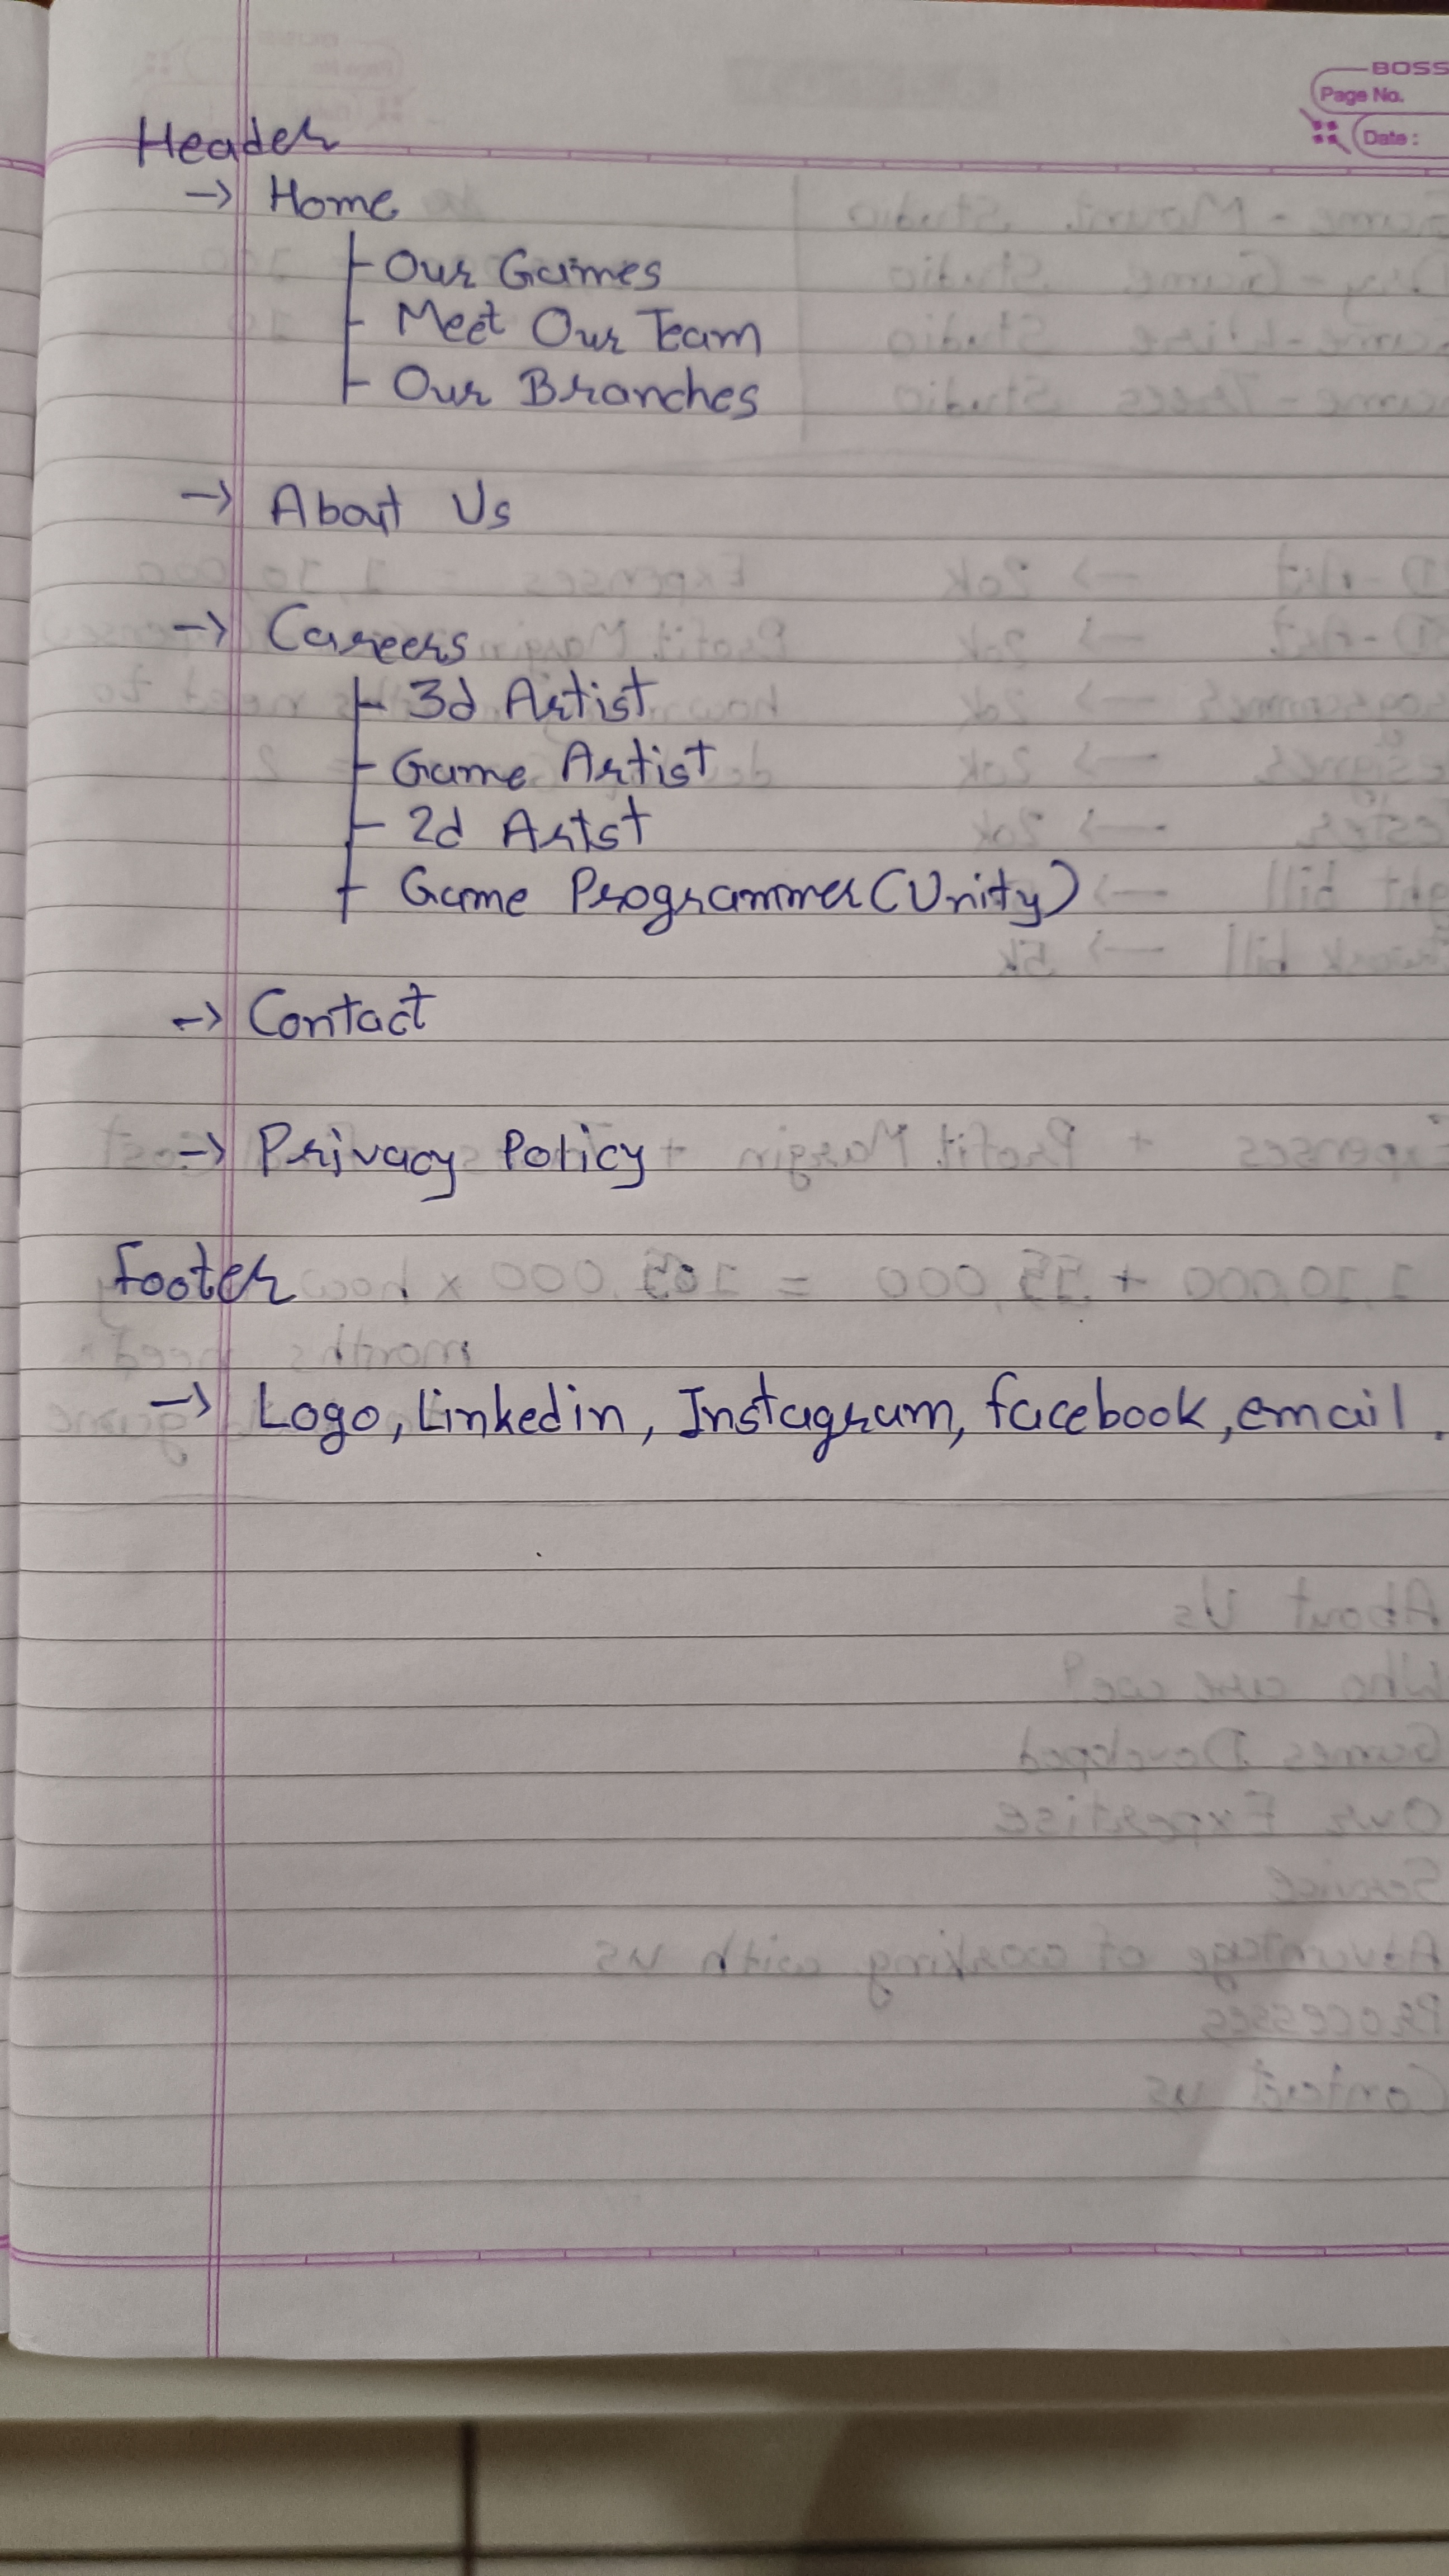 BOSS
Page No.
Date:
Header
→ Home
Our Games
Meet Our Team
Our Branches
→ About Us
→ Careers
3d Artist
Game Artist
2d Artst
Game Programmer (Unity)
→ Contact
→ Privacy Policy
Footer
→ Logo, Linkedin, Instagram, facebook, email.